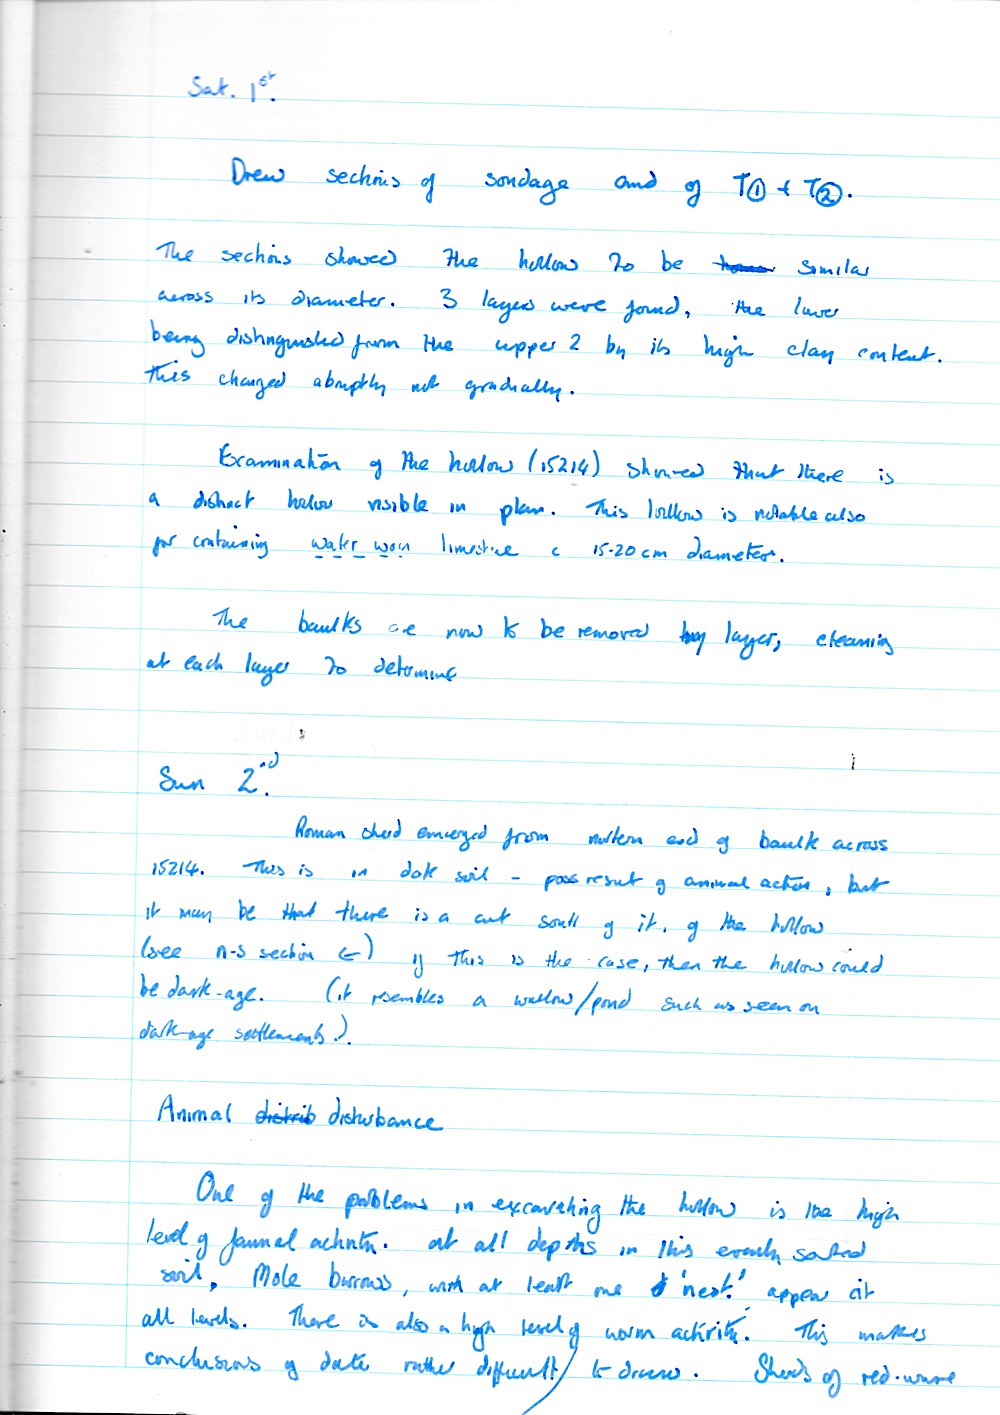 Sat. 1st.
Drew sections of sondage and of T① + T②.
The sections showed the hollow to be similar
across its diameter. 3 layers were found, the lower
being distinguished from the upper 2 by its high clay content.
This changed abruptly not gradually.
Examination of the hollow (15214) showed that there is
a distinct hollow visible in plan. This hollow is notable also
for containing water worn limestone c 15-20 cm diameter.
The baulks are now to be removed by layer, cleaning
at each layer to determine
Sun 2nd.
Roman sherd emerged from northern end of baulk across
15214. This is in dark soil - poss result of animal action, but
it may be that there is a cut south of it, of the hollow
(see n-s section ←) if this is the case, then the hollow could
be dark-age. (it resembles a wallow/pond such as seen on
dark-age settlements).
Animal distrib disturbance
One of the problems in excavating the hollow is the high
level of faunal activity. at all depths in this evenly sorted
soil, Mole burrows, with at least one 'nest' appear at
all levels. There is also a high level of worm activity. This makes
conclusions of date rather difficult to draw. Sherds of red-ware